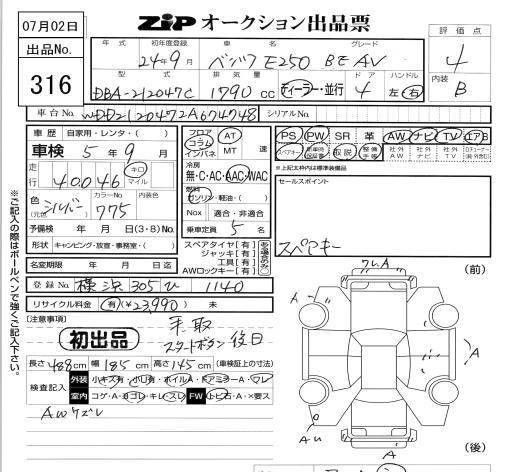 07月02日
出品No.
316
ZiP オークション出品票
年式 初年度登録 車名 グレード
24年9月 ベンツ E250 BE AV
型式 排気量 ドア ハンドル
DBA-212047C 1790cc ディーラー・並行 4 左・右
評価点
4
内装
B
車台No. WDD2120472A674748 シリアルNo.
車歴 自家用・レンタ・( )
車検 5年9月
走行 40046 キロ マイル
色 (元色) シルバー カラーNo. 775 内装色
予備検 年 月 日(3・8)No.
形状 キャンピング・放宣・事務室・( )
名変期限 年 月 日迄
フロア コラム インパネ AT MT 速
冷房
無・C・AC・AAC・WAC
燃料
ガソリン・軽油・( )
Nox 適合・非適合
乗車定員 5名
スペアタイヤ[有]
ジャッキ[有]
工具[有]
AWロックキー[有]
PS PW SR 革 AW ナビ TV エアB
スペアキー 取説 整備手帳 社外AW 社外ナビ 社外TV
※上記太枠内は標準装備品
セールスポイント
スペアキー
登録No. 横浜 305 ひ 1140
リサイクル料金 有(¥23,990) 未
[注意事項]
初出品
手、取
スタートボタン 後日
長さ488cm 幅185cm 高さ145cm (車検証上の寸法)
検査記入 外装 小キズ有・小凹有・ホイルA・ドアミラーA・ワレ
室内 コゲ・A・ヨゴレ・キレ・スレ FW トビ石・A・×要ス
AWズレ
※ご記入の際はボールペンで強くご記入下さい。
(前)
ワレ、A
A
A
A
AW
A
(後)